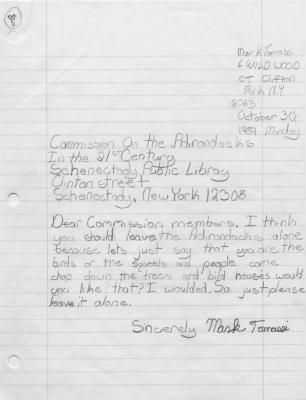 8
Mark Tomassi
6 WILD WOOD
CT Clifton
Park N.Y.
12065
October 30,
1989 Monday
Commission On the Adirondacks
In the 21st Century
Schenectady Public Library
Clinton street
Schenectady, New York 12308
Dear Commission members, I think
you should leave the Adirondacks alone
because lets just say that you are the
birds or the and people come
chop down the trees and bild houses would
you like that? I woulded. So just please
leave it alone.
Sincerely Mark Tomassi